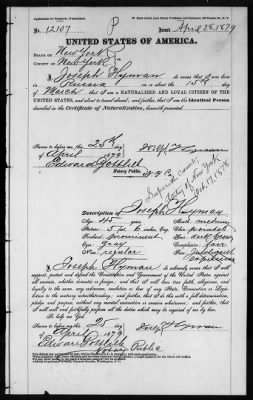 No. 12107
Issued April 28, 1879
UNITED STATES OF AMERICA.
STATE OF New York
COUNTY OF New York
I, Joseph Hyman do swear that I was born
in on the 15th day
of March that I am a NATURALIZED AND LOYAL CITIZEN OF THE
UNITED STATES, and about to travel abroad; and further, that I am the Identical Person
described in the Certificate of Naturalization, herewith
Sworn to before me, this 25th day
of April 1879
Edward Gottlieb
Notary Public. N.Y.
Superior Court
City of New York
Oct. 17, 1878
Description of Joseph Hyman
Age: 45 years
Mouth: medium
Stature: 5 feet 6 inches, Eng.
Chin:
Forehead: prominent
Hair: dark brown
Eyes: Gray
Complexion: fair
Nose: regular
Face: intelligent
expression
I, Joseph Hyman do solemnly swear that I will
support, protect and defend the Constitution and Government of the United States against
all enemies, whether domestic or foreign; and that I will bear true faith, allegiance, and
loyalty to the same, any ordinance, resolution or law of any State, Convention or Legis-
lature to the contrary notwithstanding; and further, that I do this with a full determination,
pledge and purpose, without any mental reservation or evasion whatsoever; and further, that
I will well and faithfully perform all the duties which may be required of me by law.
So help me God.
Sworn to before me, this 25 day
of April 1879
Edward Gottlieb
Notary Public